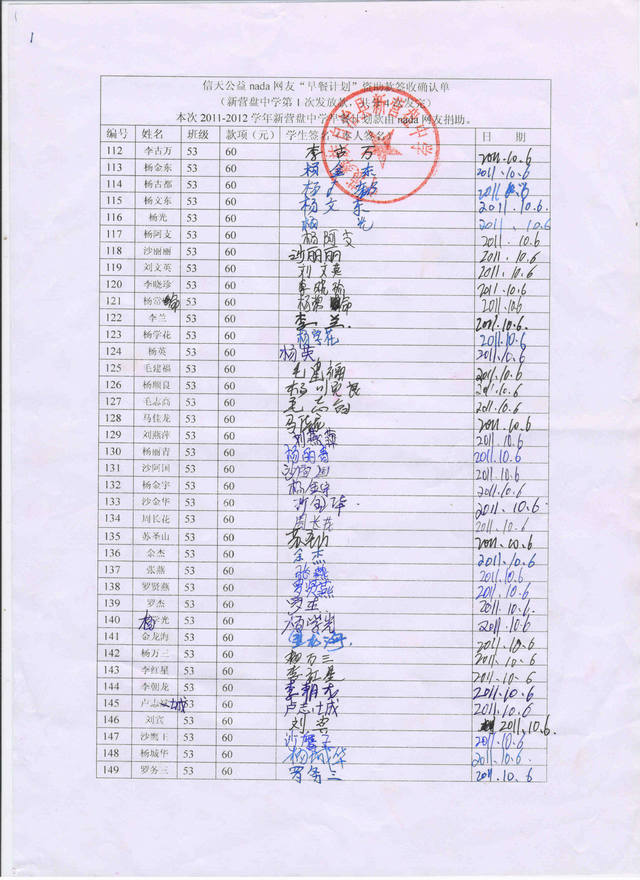 1
信天公益 nada 网友“早餐计划”资助款签收确认单
(新营盘中学第 1 次发放款，共分 4 次发完)
本次 2011-2012 学年新营盘中学早餐计划款由 nada 网友捐助。
编号 姓名 班级 款项（元） 学生签名（本人签名） 日 期
112 李古万 53 60 李古万 2011.10.6
113 杨金东 53 60 杨金东 2011.10.6
114 杨古都 53 60 杨古都 2011
115 杨文东 53 60 杨文东 2011.10.6
116 杨光 53 60 杨光 2011.10.6
117 杨阿支 53 60 杨阿支 2011.10.6
118 沙丽丽 53 60 沙丽丽 2011.10.6
119 刘文英 53 60 刘文英 2011.10.6
120 李晓珍 53 60 李晓珍 2011.10.6
121 杨常 53 60 杨常 2011.10.6
122 李兰 53 60 李兰 2011.10.6
123 杨学花 53 60 杨学花 2011.10.6
124 杨英 53 60 杨英 2011.10.6
125 毛建福 53 60 毛建福 2011.10.6
126 杨顺良 53 60 杨顺良 2011.10.6
127 毛志高 53 60 毛志高 2011.10.6
128 马佳龙 53 60 马佳龙 2011.10.6
129 刘燕萍 53 60 刘燕萍 2011.10.6
130 杨丽青 53 60 杨丽青 2011.10.6
131 沙阿国 53 60 沙阿国 2011.10.6
132 杨金宇 53 60 杨金宇 2011.10.6
133 沙金华 53 60 沙金华 2011.10.6
134 周长花 53 60 周长花 2011.10.6
135 苏圣山 53 60 苏圣山 2011.10.6
136 余杰 53 60 余杰 2011.10.6
137 张燕 53 60 张燕 2011.10.6
138 罗贤燕 53 60 罗贤燕 2011.10.6
139 罗杰 53 60 罗杰 2011.10.6
140 杨学光 53 60 杨学光 2011.10.6
141 金龙海 53 60 金龙海 2011.10.6
142 杨万三 53 60 杨万三 2011.10.6
143 李红星 53 60 李红星 2011.10.6
144 李朝龙 53 60 李朝龙 2011.10.6
145 卢志城 53 60 卢志城 2011.10.6
146 刘宾 53 60 刘宾 2011.10.6
147 沙鹰子 53 60 沙鹰子 2011.10.6
148 杨城华 53 60 杨城华 2011.10.6
149 罗务三 53 60 罗务三 2011.10.6